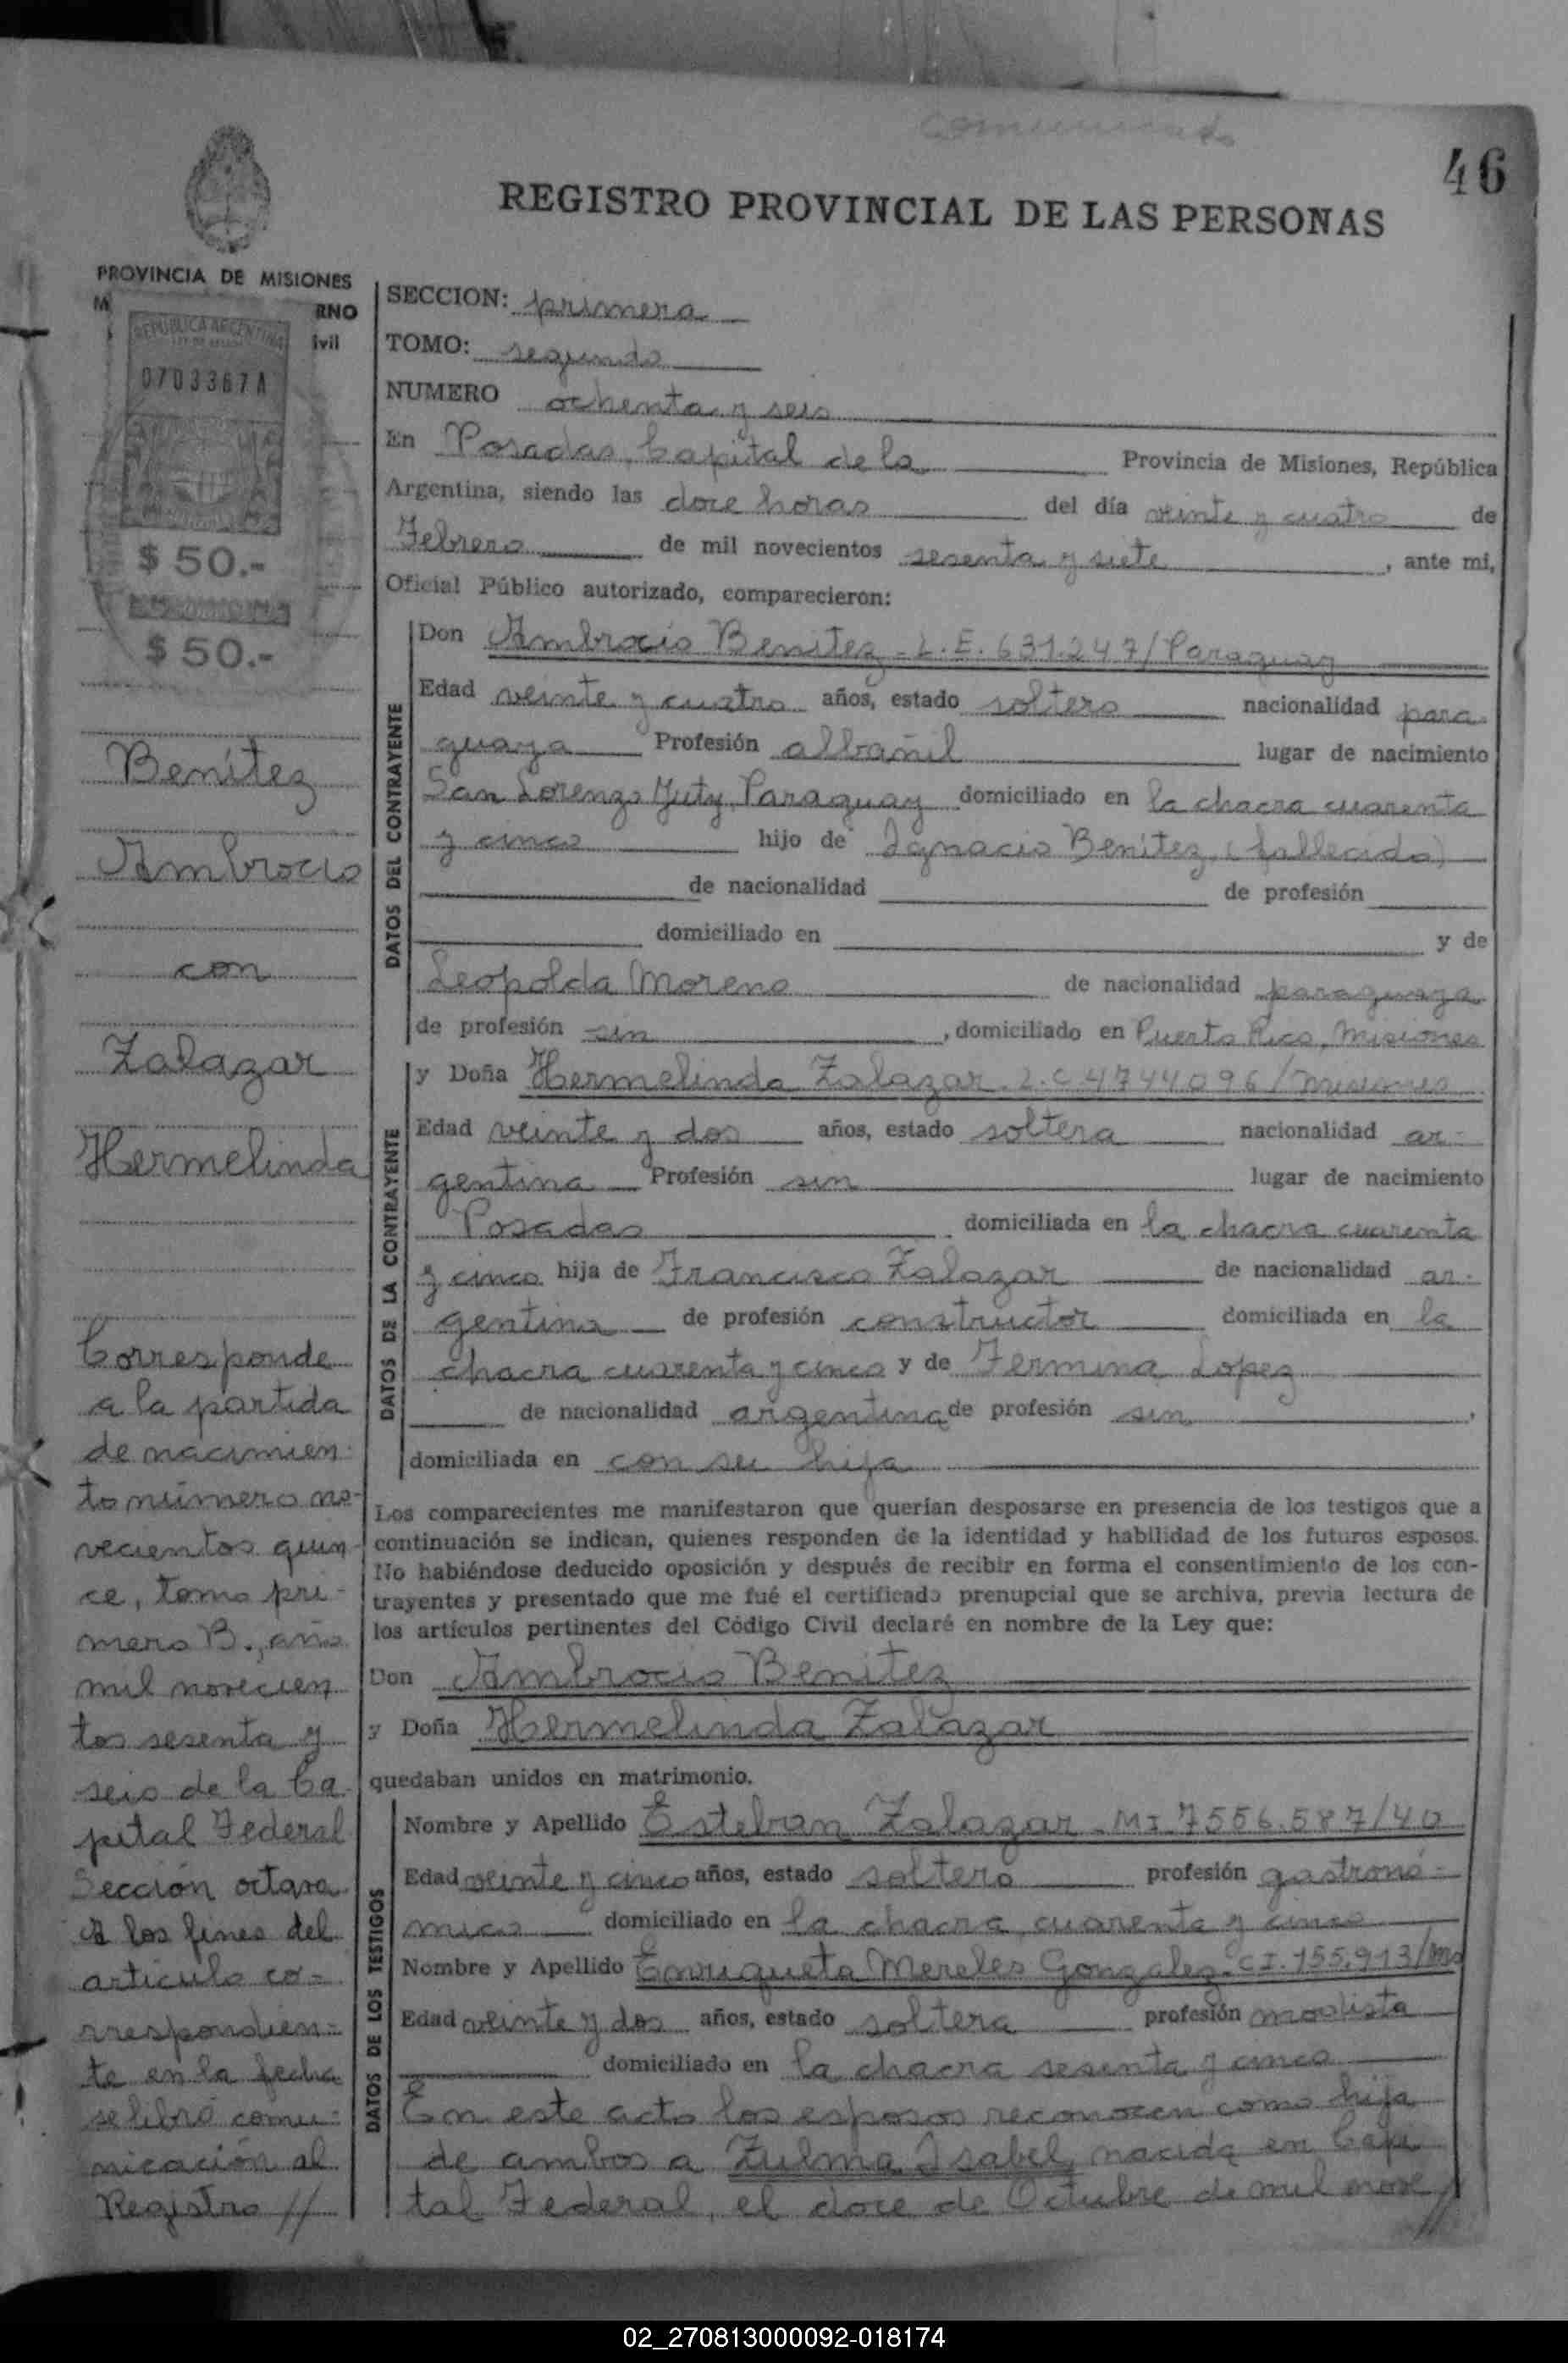 comunicado
46
REGISTRO PROVINCIAL DE LAS PERSONAS
PROVINCIA DE MISIONES
M
RNO
ivil
REPUBLICA ARGENTINA
0703367A
$ 50.-
$ 50.-
Benítez
Ambrocio
con
Zalazar
Hermelinda
Corresponde
a la partida
de nacimien-
to número no-
vecientos quin-
ce, tomo pri-
mero B., año
mil novecien
tos sesenta y
seis de la Ca-
pital Federal
Sección octava
A los fines del
artículo co-
rrespondien-
te en la fecha
se libró comu-
nicación al
Registro //
SECCION: primera
TOMO: segundo
NUMERO ochenta y seis
En Posadas, Capital de la Provincia de Misiones, República
Argentina, siendo las doce horas del día veinte y cuatro de
Febrero de mil novecientos sesenta y siete, ante mi,
Oficial Público autorizado, comparecieron:
DATOS DEL CONTRAYENTE
Don Ambrocio Benitez - L.E. 631.247/Paraguay
Edad veinte y cuatro años, estado soltero nacionalidad para-
guaya Profesión albañil lugar de nacimiento
San Lorenzo Yuty, Paraguay domiciliado en la chacra cuarenta
y cinco hijo de Ignacio Benítez, (fallecido)
de nacionalidad de profesión
domiciliado en y de
Leopolda Moreno de nacionalidad paraguaya
de profesión sin, domiciliado en Puerto Rico, Misiones
DATOS DE LA CONTRAYENTE
y Doña Hermelinda Zalazar. L.C 4744096/Misiones
Edad veinte y dos años, estado soltera nacionalidad ar-
gentina Profesión sin lugar de nacimiento
Posadas domiciliada en la chacra cuarenta
y cinco hija de Francisco Zalazar de nacionalidad ar-
gentina de profesión constructor domiciliada en la
chacra cuarenta y cinco y de Fermina Lopez
de nacionalidad argentina de profesión sin,
domiciliada en con su hija
Los comparecientes me manifestaron que querían desposarse en presencia de los testigos que a
continuación se indican, quienes responden de la identidad y habilidad de los futuros esposos.
No habiéndose deducido oposición y después de recibir en forma el consentimiento de los con-
trayentes y presentado que me fué el certificado prenupcial que se archiva, previa lectura de
los artículos pertinentes del Código Civil declaré en nombre de la Ley que:
Don Ambrocio Benitez
y Doña Hermelinda Zalazar
quedaban unidos en matrimonio.
DATOS DE LOS TESTIGOS
Nombre y Apellido Esteban Zalazar - MI. 7556.587/40
Edad veinte y cinco años, estado soltero profesión gastronó-
mico domiciliado en la chacra cuarenta y cinco
Nombre y Apellido Enriqueta Mereles Gonzalez - CI. 155.913/Ms
Edad veinte y dos años, estado soltera profesión modista
domiciliado en la chacra sesenta y cinco
En este acto los esposos reconocen como hija
de ambos a Zulma Isabel, nacida en Capi
tal Federal, el doce de Octubre de mil nove//
02_270813000092-018174